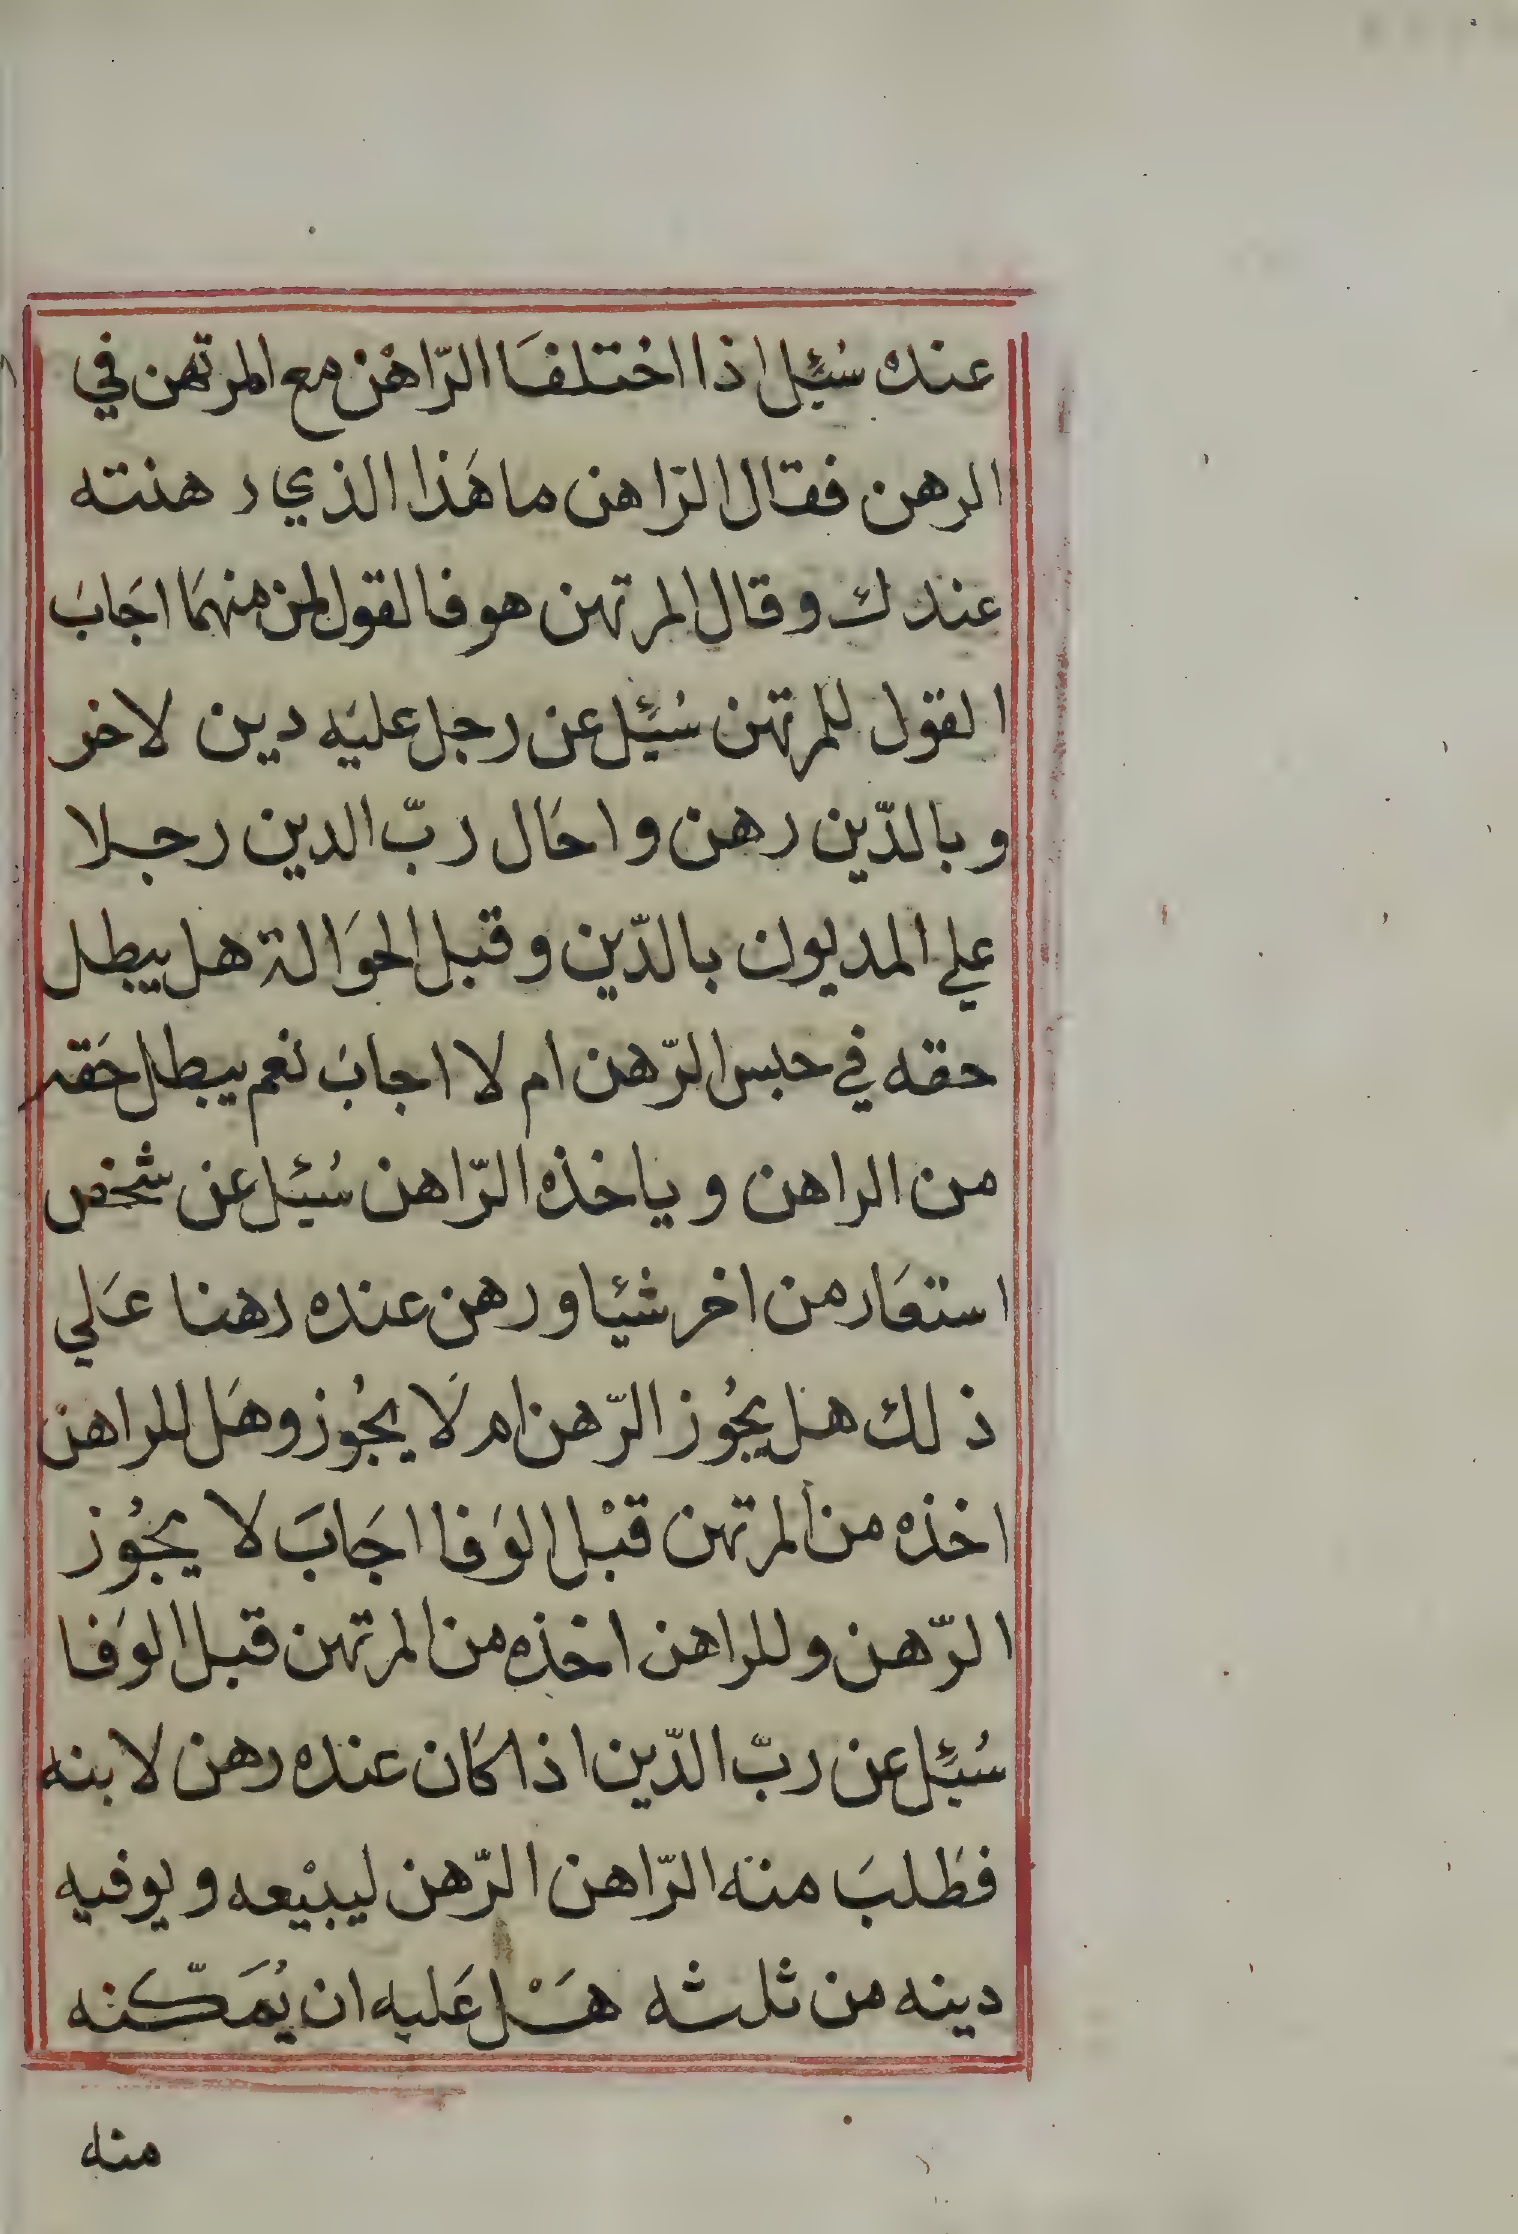 عنده سُئِل اذا اختلفَا الرّاهْن مع المرتهن في
الرهن فقال الرّاهن ما هَذا الذي رهنته
عندك وقال المرتهن هو فالقول لمن منهمَا اجَابَ
القول للمرتهن سُئِل عن رجل عليَه دين لاخر
وبالدّين رهن واحَال ربّ الدين رجلا
علي المديون بالدّين وقبل الحوَالة هل يبطل
حقه في حبس الرّهن ام لا اجابَ نعم يبطل حَقه
من الراهن وياخذه الرّاهن سُئِل عن شخص
استعَار من اخر شيئا ورهن عنده رهنا عَلي
ذلك هل يجُوز الرّهن ام لَا يجُوز وهَل للراهنْ
اخذه من المرتهن قبْل الوَفا اجَابَ لا يجُوز
الرّهن وللراهن اخذه من المرتهن قبل الوَفا
سُئِل عن ربّ الدّين اذا كَان عنده رهن لابنه
فطَلبَ منه الرّاهن الرّهن ليبيْعه ويوفيه
دينه من ثلثه هَلْ عَليه ان يُمَكّنه
منه